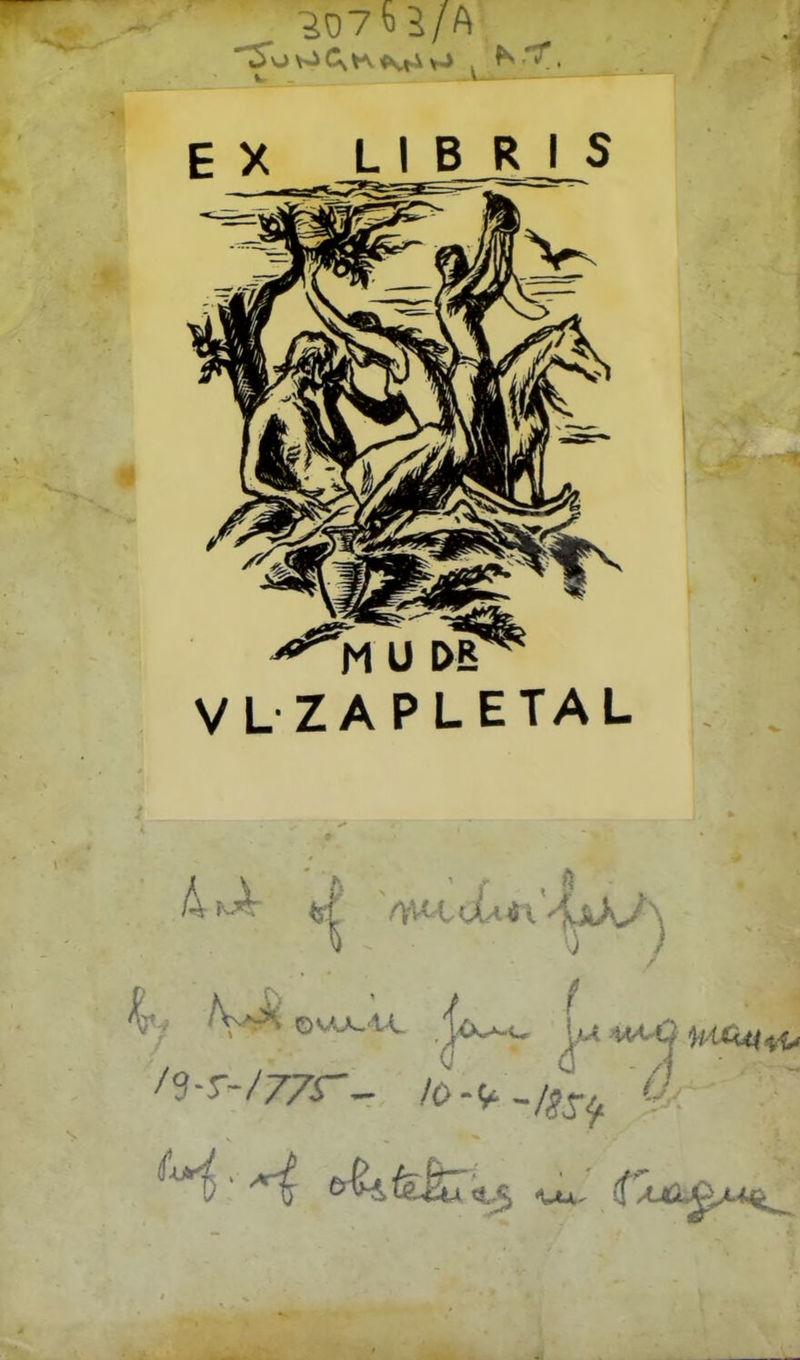 30763/A
JUNGMANN, A.J.
EX LIBRIS
MUDR
VL·ZAPLETAL
Art of midwifery
by Antonin Jan Jungmann
19-5-1775 - 10-4-1854
Prof. of obstetrics in Prague